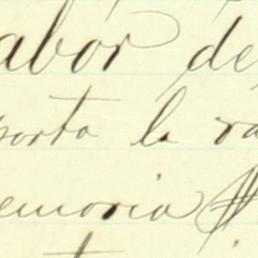 abor de
porta la ra
emoria